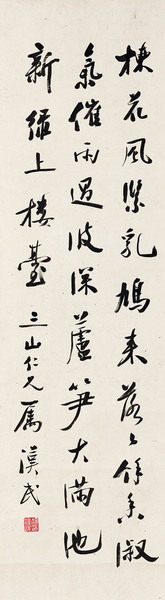 楝花風緊乳鳩來落々淑
氣催雨過陂深蘆筍大滿池
新綠上樓臺 三山仁兄屬 漢民